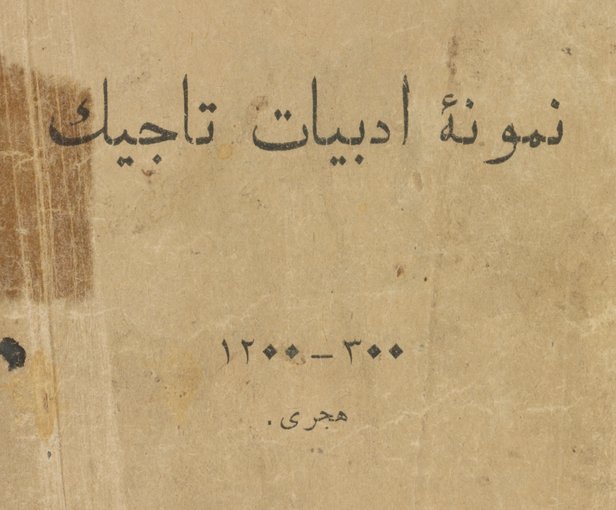 نمونهٔ ادبیات تاجیك
۳۰۰ – ۱۲۰۰
هجری.